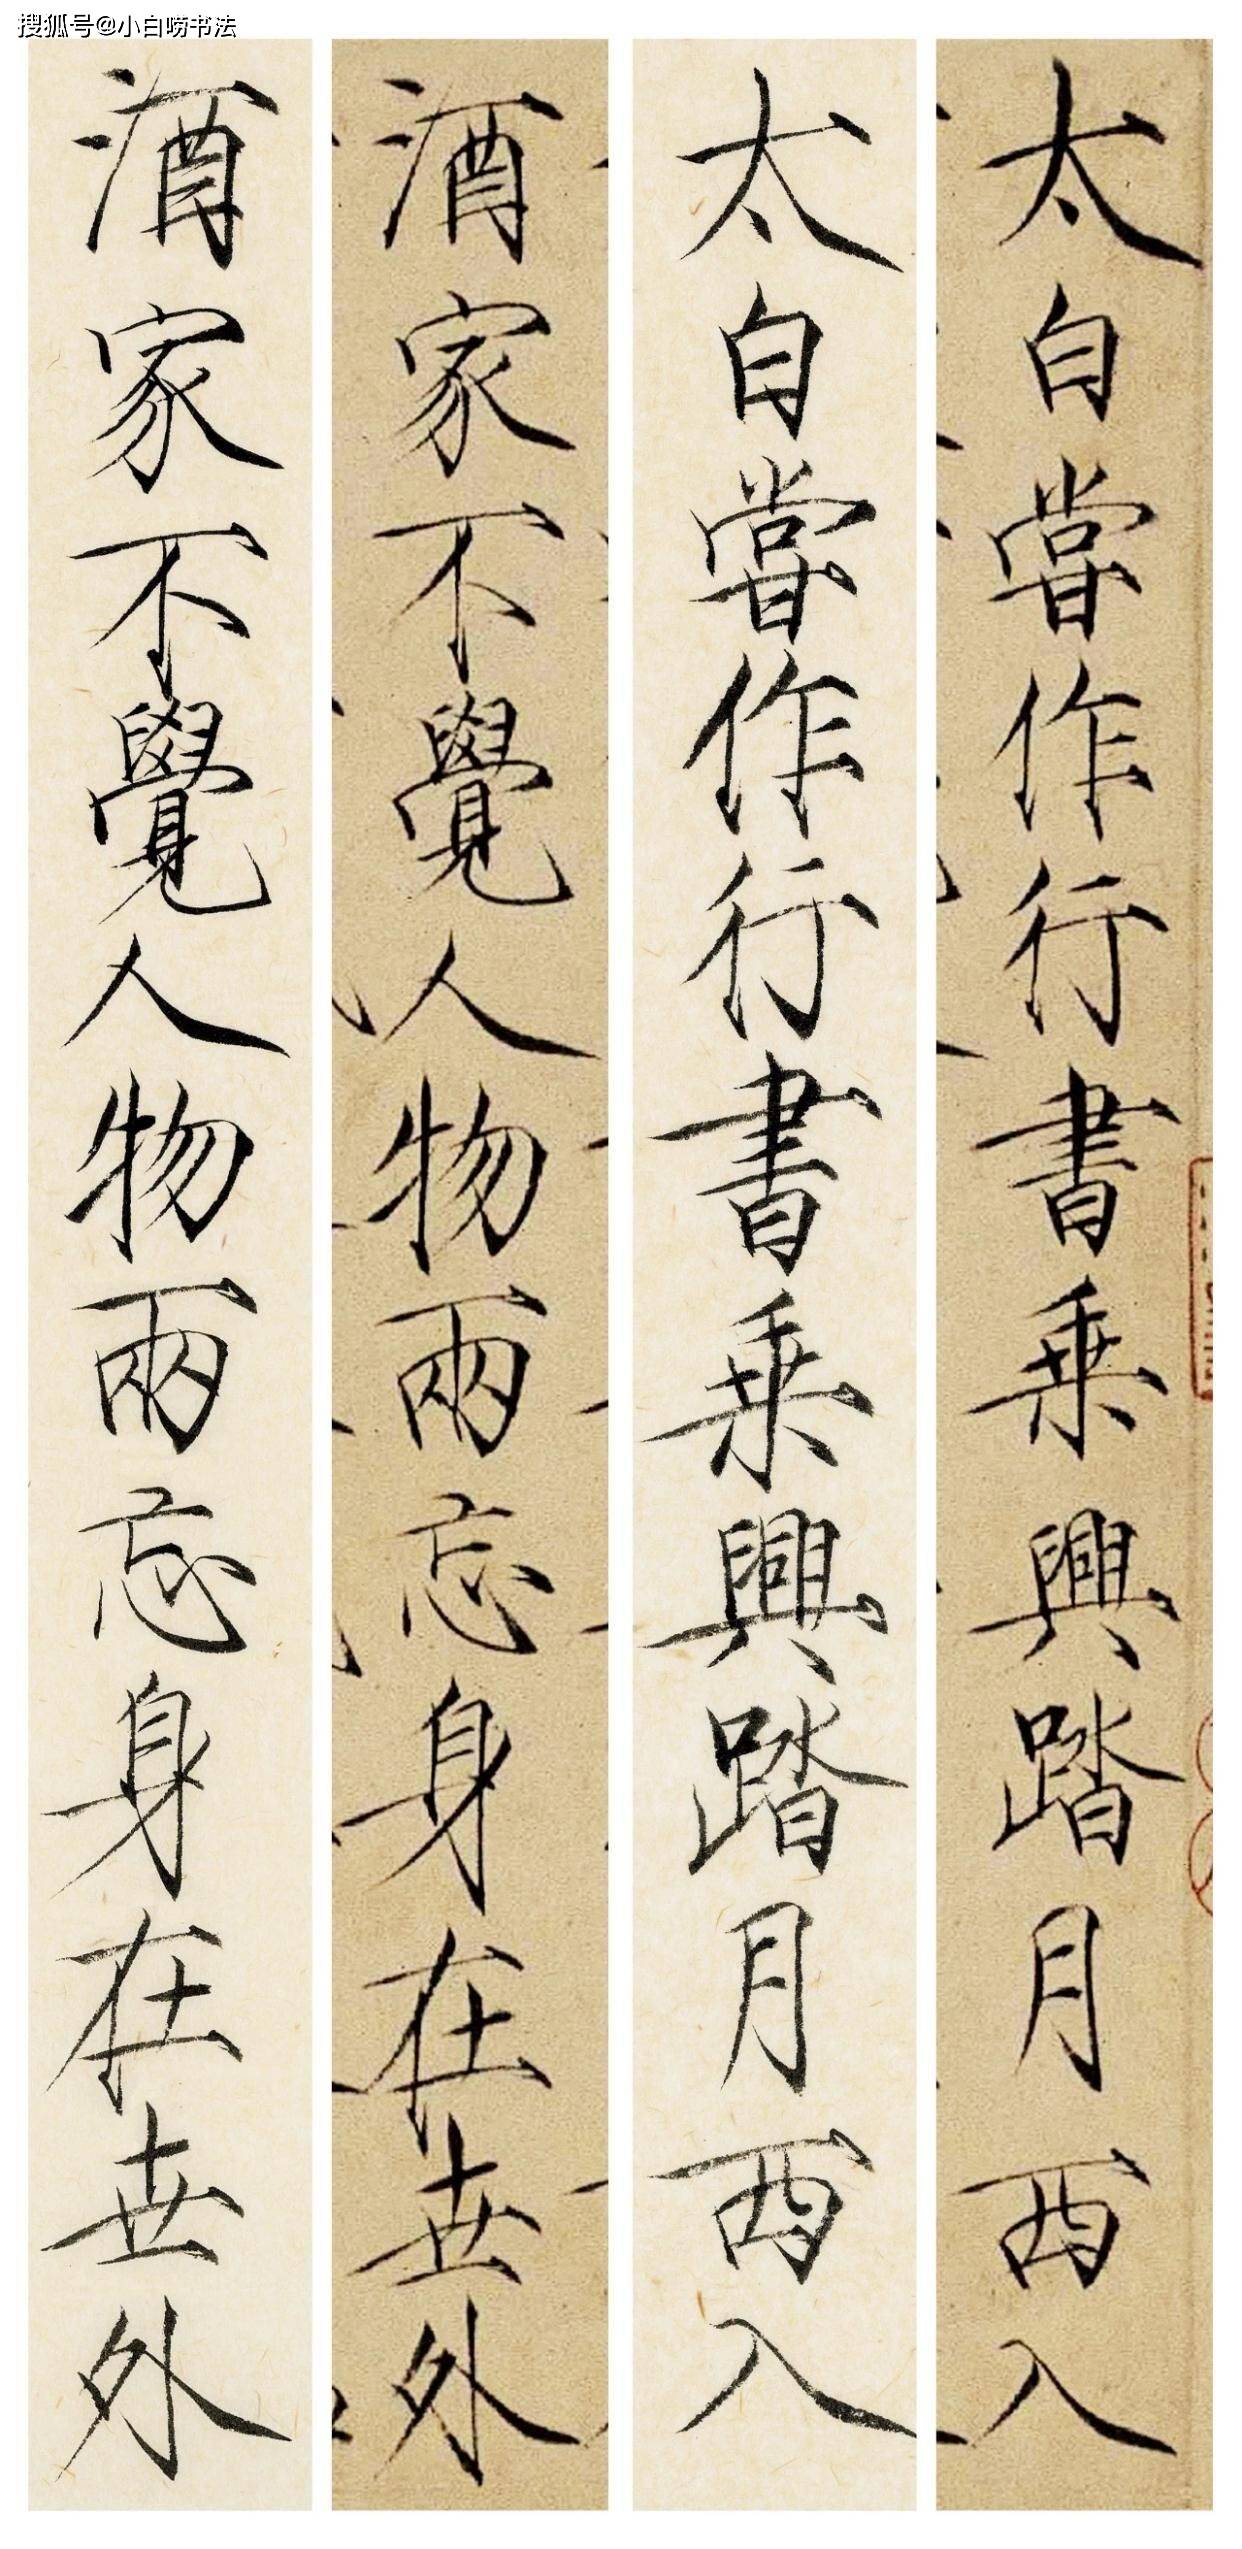 搜狐号@小白唠书法
太白嘗作行書乗興踏月西入
太白嘗作行書乗興踏月西入
酒家不覺人物兩忘身在世外
酒家不覺人物兩忘身在世外